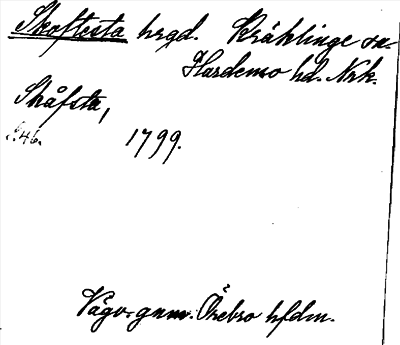 Skoftesta hrgd. Kräklinge sn.
Hardemo hd. Nrk.
Skåfsta,
S. 46. 1799.
Vägv. gnm. Örebro hfdm.